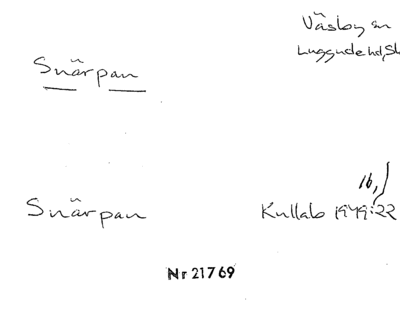 Väsby sn
Luggude hd, Sk
Snärpan
16,
Snärpan
Kullab 1949:22
Nr 21769